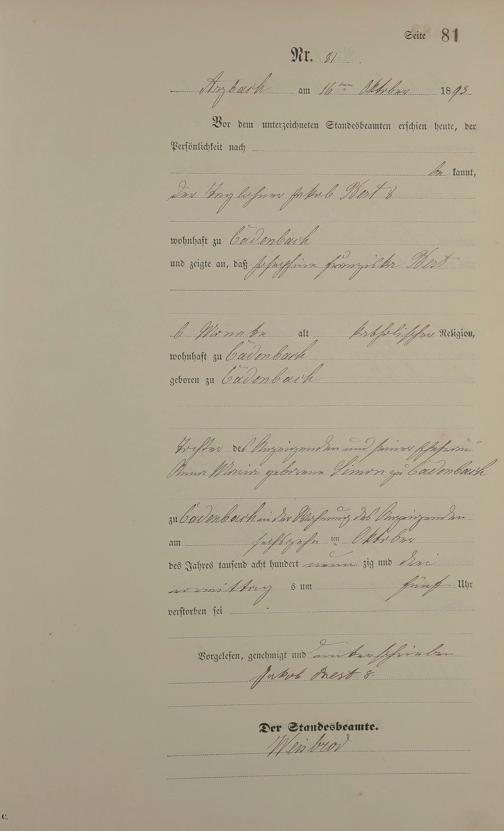 Seite 81
Nr. 81.
Arzbach am 16ten Oktober 1893
Vor dem unterzeichneten Standesbeamten erschien heute, der
Persönlichkeit nach
be kannt,
der Taglöhner Jakob
wohnhaft zu Cadenbach
und zeigte an, daß Josephina Franziska
6 Monate alt katholischer Religion,
wohnhaft zu Cadenbach
geboren zu Cadenbach
Tochter des Anzeigenden und seiner Ehefrau
Anna Maria geborene Simon zu Cadenbach
zu Cadenbach in der Wohnung des Anzeigenden
am sechszehn ten Oktober
des Jahres tausend acht hundert neun zig und drei
ormittag s um fünf Uhr
verstorben sei
Vorgelesen, genehmigt und unterschrieben
Jakob
Der Standesbeamte.
Weisbrod
C.